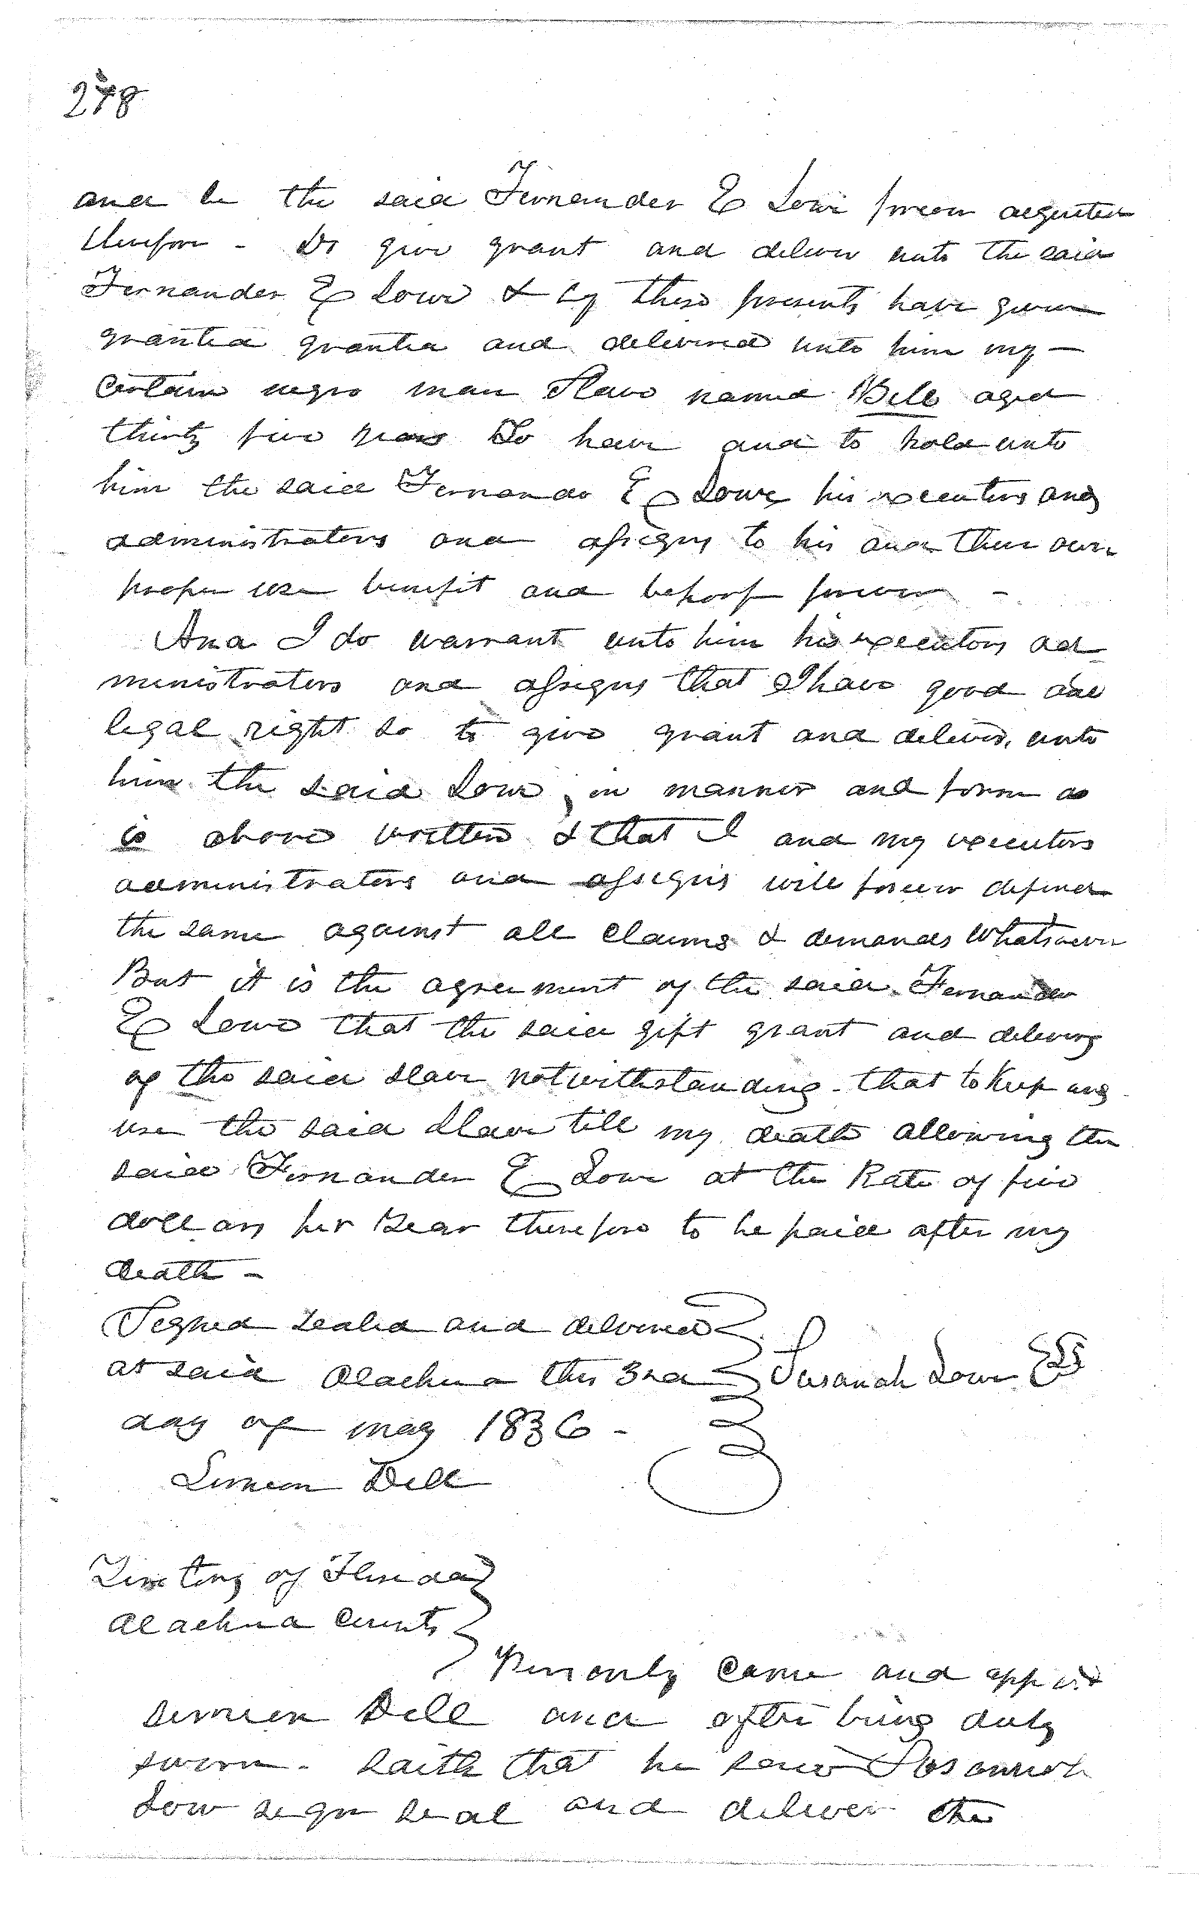 278
and be the said Fernander E Lowe forever acquitted
therefore - Do give grant and deliver unto the said
Fernander E Lowe & by these presents have given
granted granted and delivered unto him my -
Certain negro man Slave named Bill aged
thirty five years To have and to hold unto
him the said Fernando E Lowe his executors and
administrators and assigns to his and their own
proper use benefit and behoof forever -
And I do warrant unto him his executors ad
ministrators and assigns that I have good and
legal right so to give grant and deliver, unto
him the said Lowe, in manner and form as
is above written & that I and my executors
administrators and assigns will forever defend
the same against all claims & demands Whatsoever
But it is the agreement of the said Fernander
E Lowe that the said gift grant and delivery
of the said slave notwithstanding - that to Keep and
use the said Slave till my death allowing the
said Fernander E Lowe at the Rate of five
dollars per Year therefore to be paid after my
death -
Signed sealed and delivered
at said Alachua this 3rd Susanah Lowe
day of may 1836 -
Simeon Dell
Territory of Florida
Alachua County
Personly came and
simeon Dell and after being duly
sworn - saith that he saw Susannah
Low sign seal and deliver the